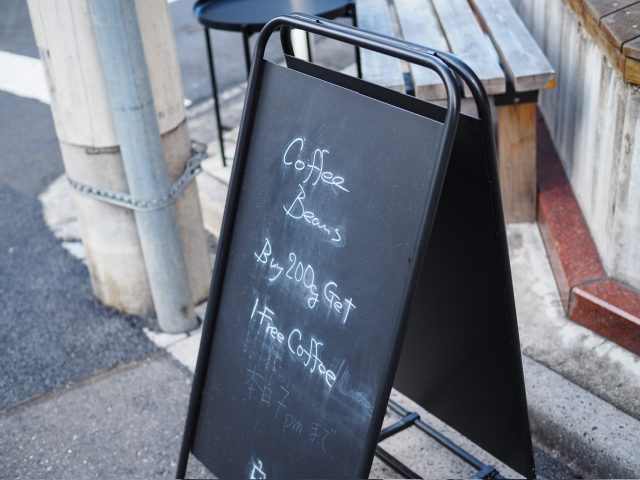 Coffee
Beans
Buy 200g Get
1 Free Coffee
本日7
pmまで